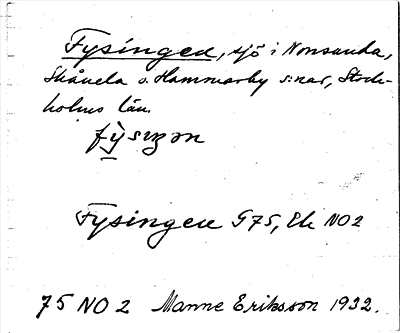 Fysingen, sjö i Norrsunda,
Skånela o. Hammarby s:nar, Stock-
holms län.
Fysingen G75, Ek NO2
75 NO 2 Manne Eriksson 1932.